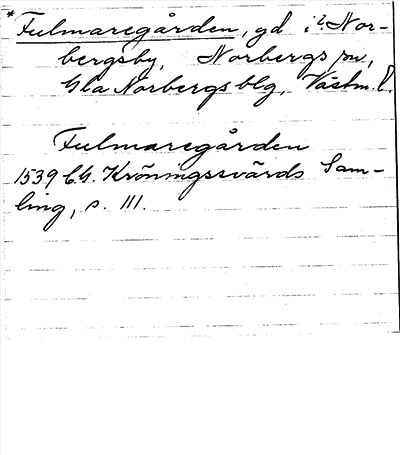 * Fulmaregården, gd i? Nor-
bergsby, Norbergs sn,
Gla Norbergs blg, Västm. l.
Fulmaregården
1539 C.G. Kröningssvärds Sam-
ling, s. 111.